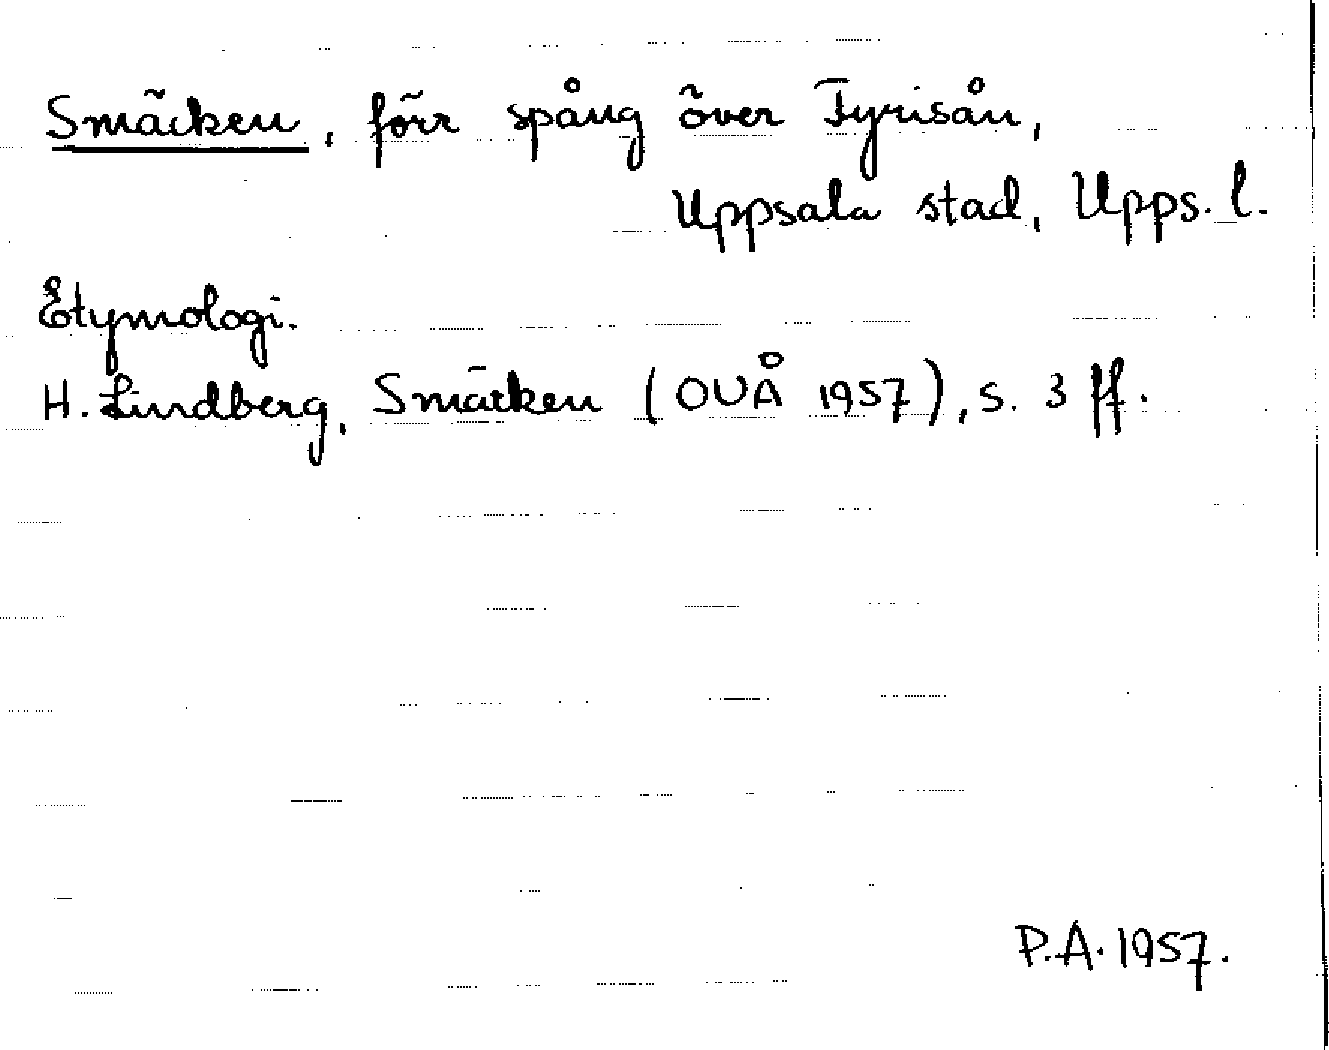 Smäcken, förr spång över Fyrisån,
Uppsala stad, Upps. l.
Etymologi.
H. Lindberg, Smäcken (OUÅ 1957), s. 3 ff.
P.A. 1957.